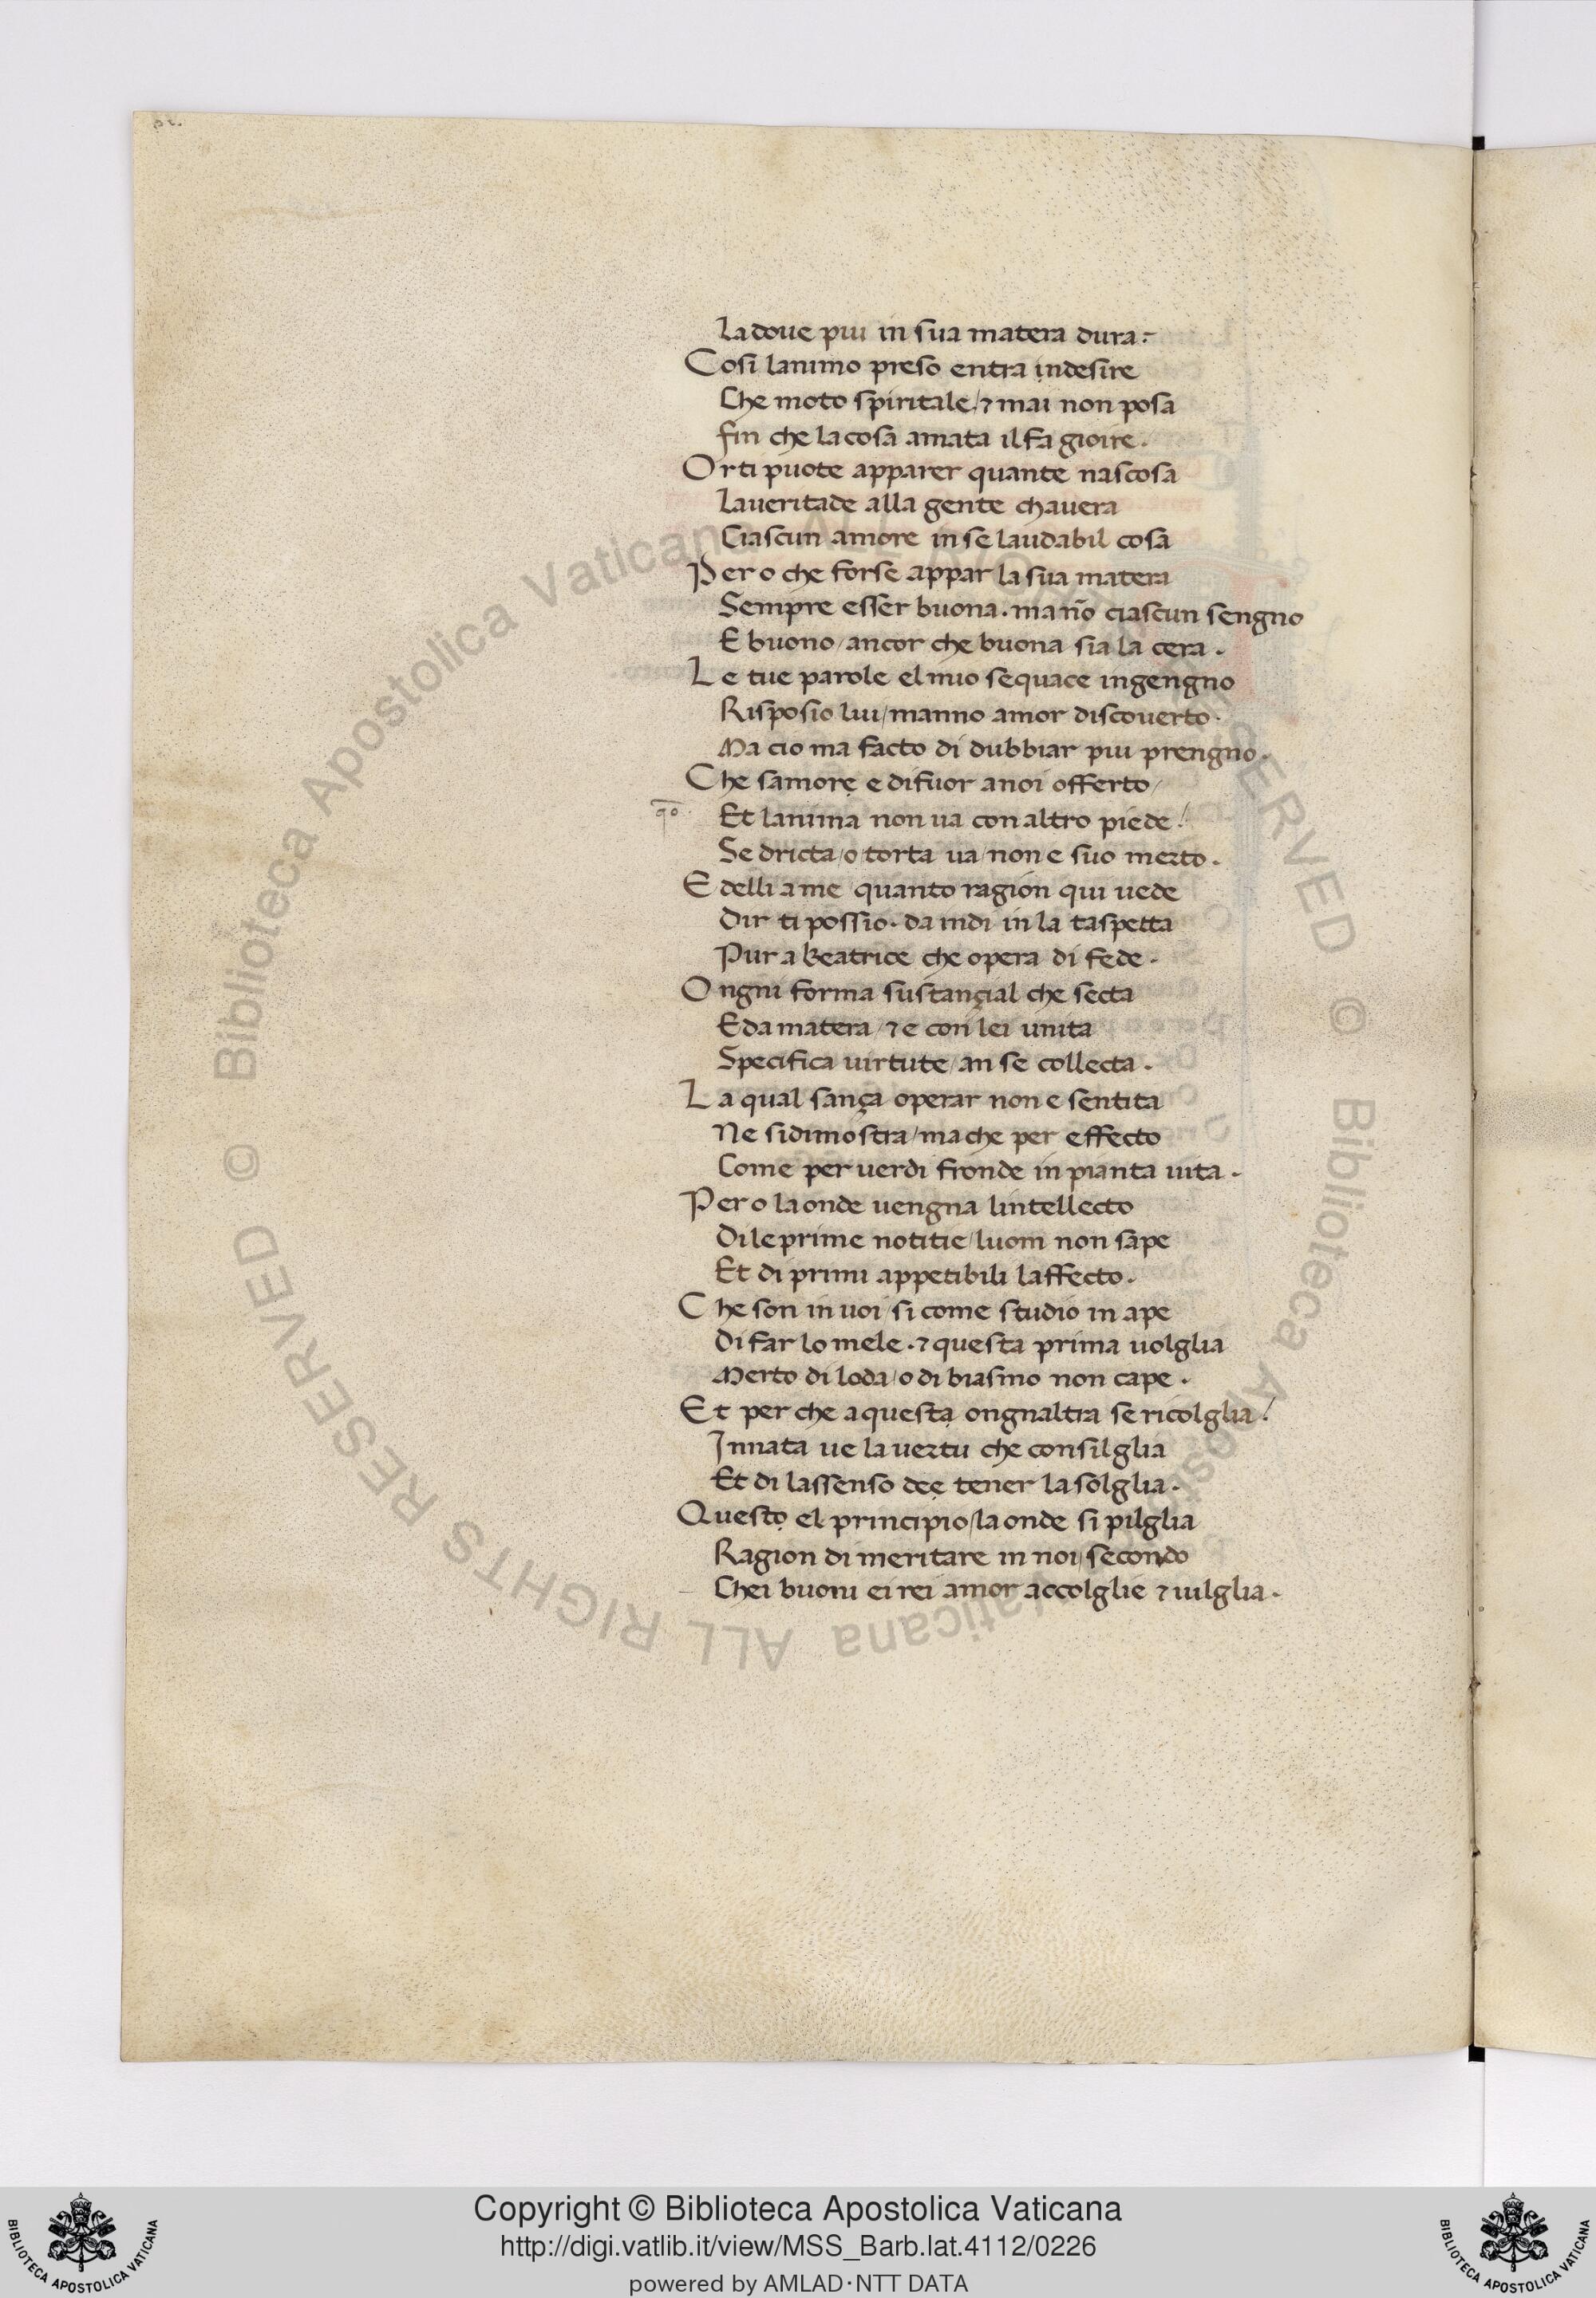 La doue piu in sua matera dura:
Cosi lanimo preso entra indesire
Che moto spiritale / ⁊ mai non posa
fin che la cosa amata il fa gioire.
Or ti puote apparer quante nascosa
La ueritade alla gente chauera
Ciascun amore in se laudabil cosa
Pero che forse appar la sua matera
Sempre esser buona. ma nō ciascun sengno
E buono / ancor che buona sia la cera.
Le tue parole el mio sequace ingengno
Risposio lui / manno amor discouerto.
Ma cio ma facto di dubbiar piu prengno.
Che samorẹ e difuor anoi offerto /
q̄o
Et lanima non ua con altro piede!
Se dricta / o torta ua / non e suo merto.
E delli a me quanto ragion qui uede
Dir ti possio. da indi in la taspetta
Pur a beatrice che opera di fede.
Ongni forma sustançial che secta
E da matera / ⁊ e con lei unita
Specifica uirtute / an se collecta.
La qual sança operar non e sentita
Ne sidimostra / ma che per effecto
Come per uerdi fronde in pianta uita.
Pero la onde uengna lintellecto
Di le prime notitie / luom non sape
Et di primi appetibili laffecto.
Che son in uoi / si come studio in ape
Di far lo mele. ⁊ questa prima uolglia
Merto di loda / o di biasmo non cape.
Et per che a questạ ongnaltra se ricolglia!
Innata ue la uertu che consilglia
Et di lassenso deẹ tener la solglia.
Questọ el principio / la onde si pilglia
Ragion di meritare in noi / secondo
Chei buoni ei rei amor accolglie ⁊ uilglia.
© Biblioteca Apostolica Vaticana ALL RIGHTS RESERVED © Biblioteca Apostolica Vaticana ALL RIGHTS RESERVED
Copyright © Biblioteca Apostolica Vaticana
http://digi.vatlib.it/view/MSS_Barb.lat.4112/0226
powered by AMLAD·NTT DATA
BIBLIOTECA APOSTOLICA VATICANA
BIBLIOTECA APOSTOLICA VATICANA